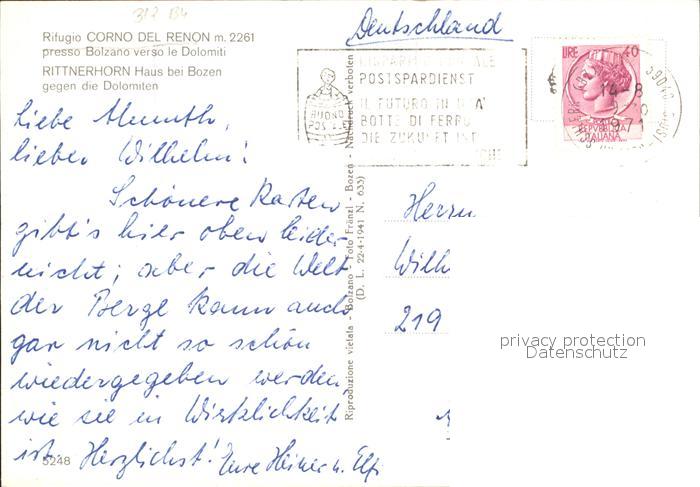 312 134
Deutschland
Rifugio CORNO DEL RENON m. 2261
presso Bolzano verso le Dolomiti
RITTNERHORN Haus bei Bozen
gegen die Dolomiten
Liebe Almuth,
lieber Wilhelm!
Schönere Karten
gibt's hier oben leider
nicht; aber die Welt
der Berge kann auch
gar nicht so schön
wiedergegeben werden
wie sie in Wirklichkeit
ist. Herzlichst! Eure Heiner u. Elfi
5248
Riproduzione vietata - Bolzano - Foto Fränzl - Bozen - Nachdruck verboten
(D. L. 22-4-1941 N. 633)
BUONO
POSTSPARDIENST
IL FUTURO IN
BOTTE DI FERRO
DIE ZUKUNFT IST
LIRE 40
REPVBBLICA
ITALIANA
14-8
39040
Herrn
Wilh
219
privacy protection
Datenschutz